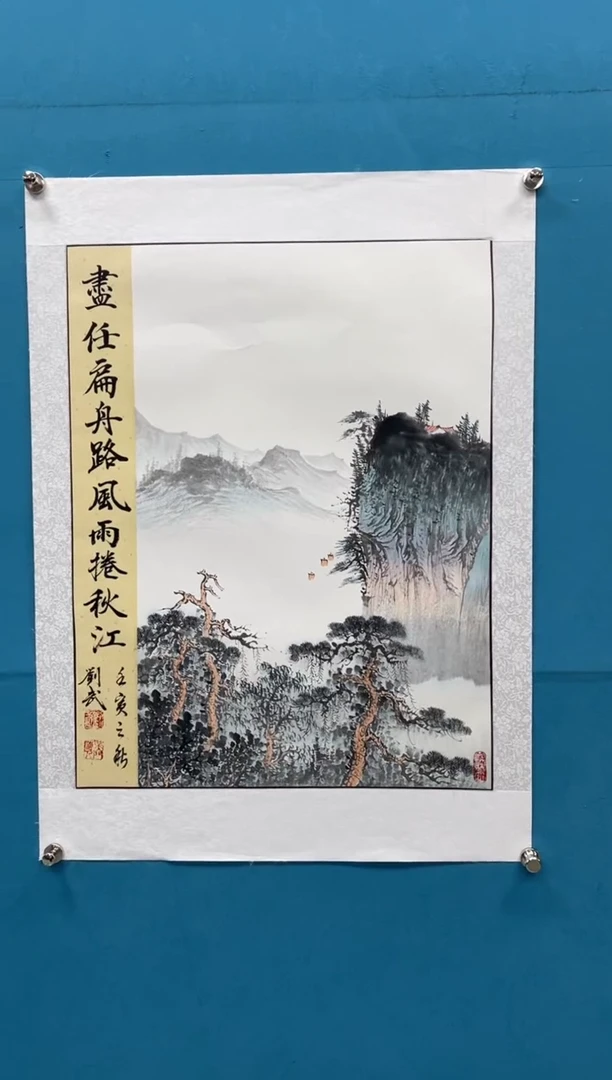 盡任扁舟路風雨捲秋江
壬寅之秋
劉武